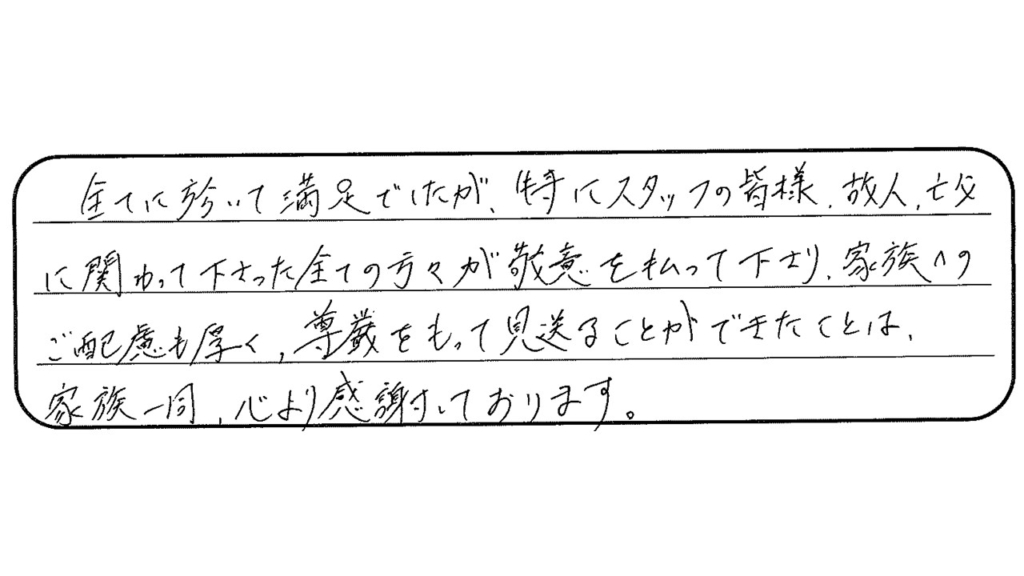 全てに於いて満足でしたが、特にスタッフの皆様、故人、亡父
に関わって下さった全ての方々が敬意を払って下さり、家族への
ご配慮も厚く、尊厳をもって見送ることができたことは、
家族一同、心より感謝しております。